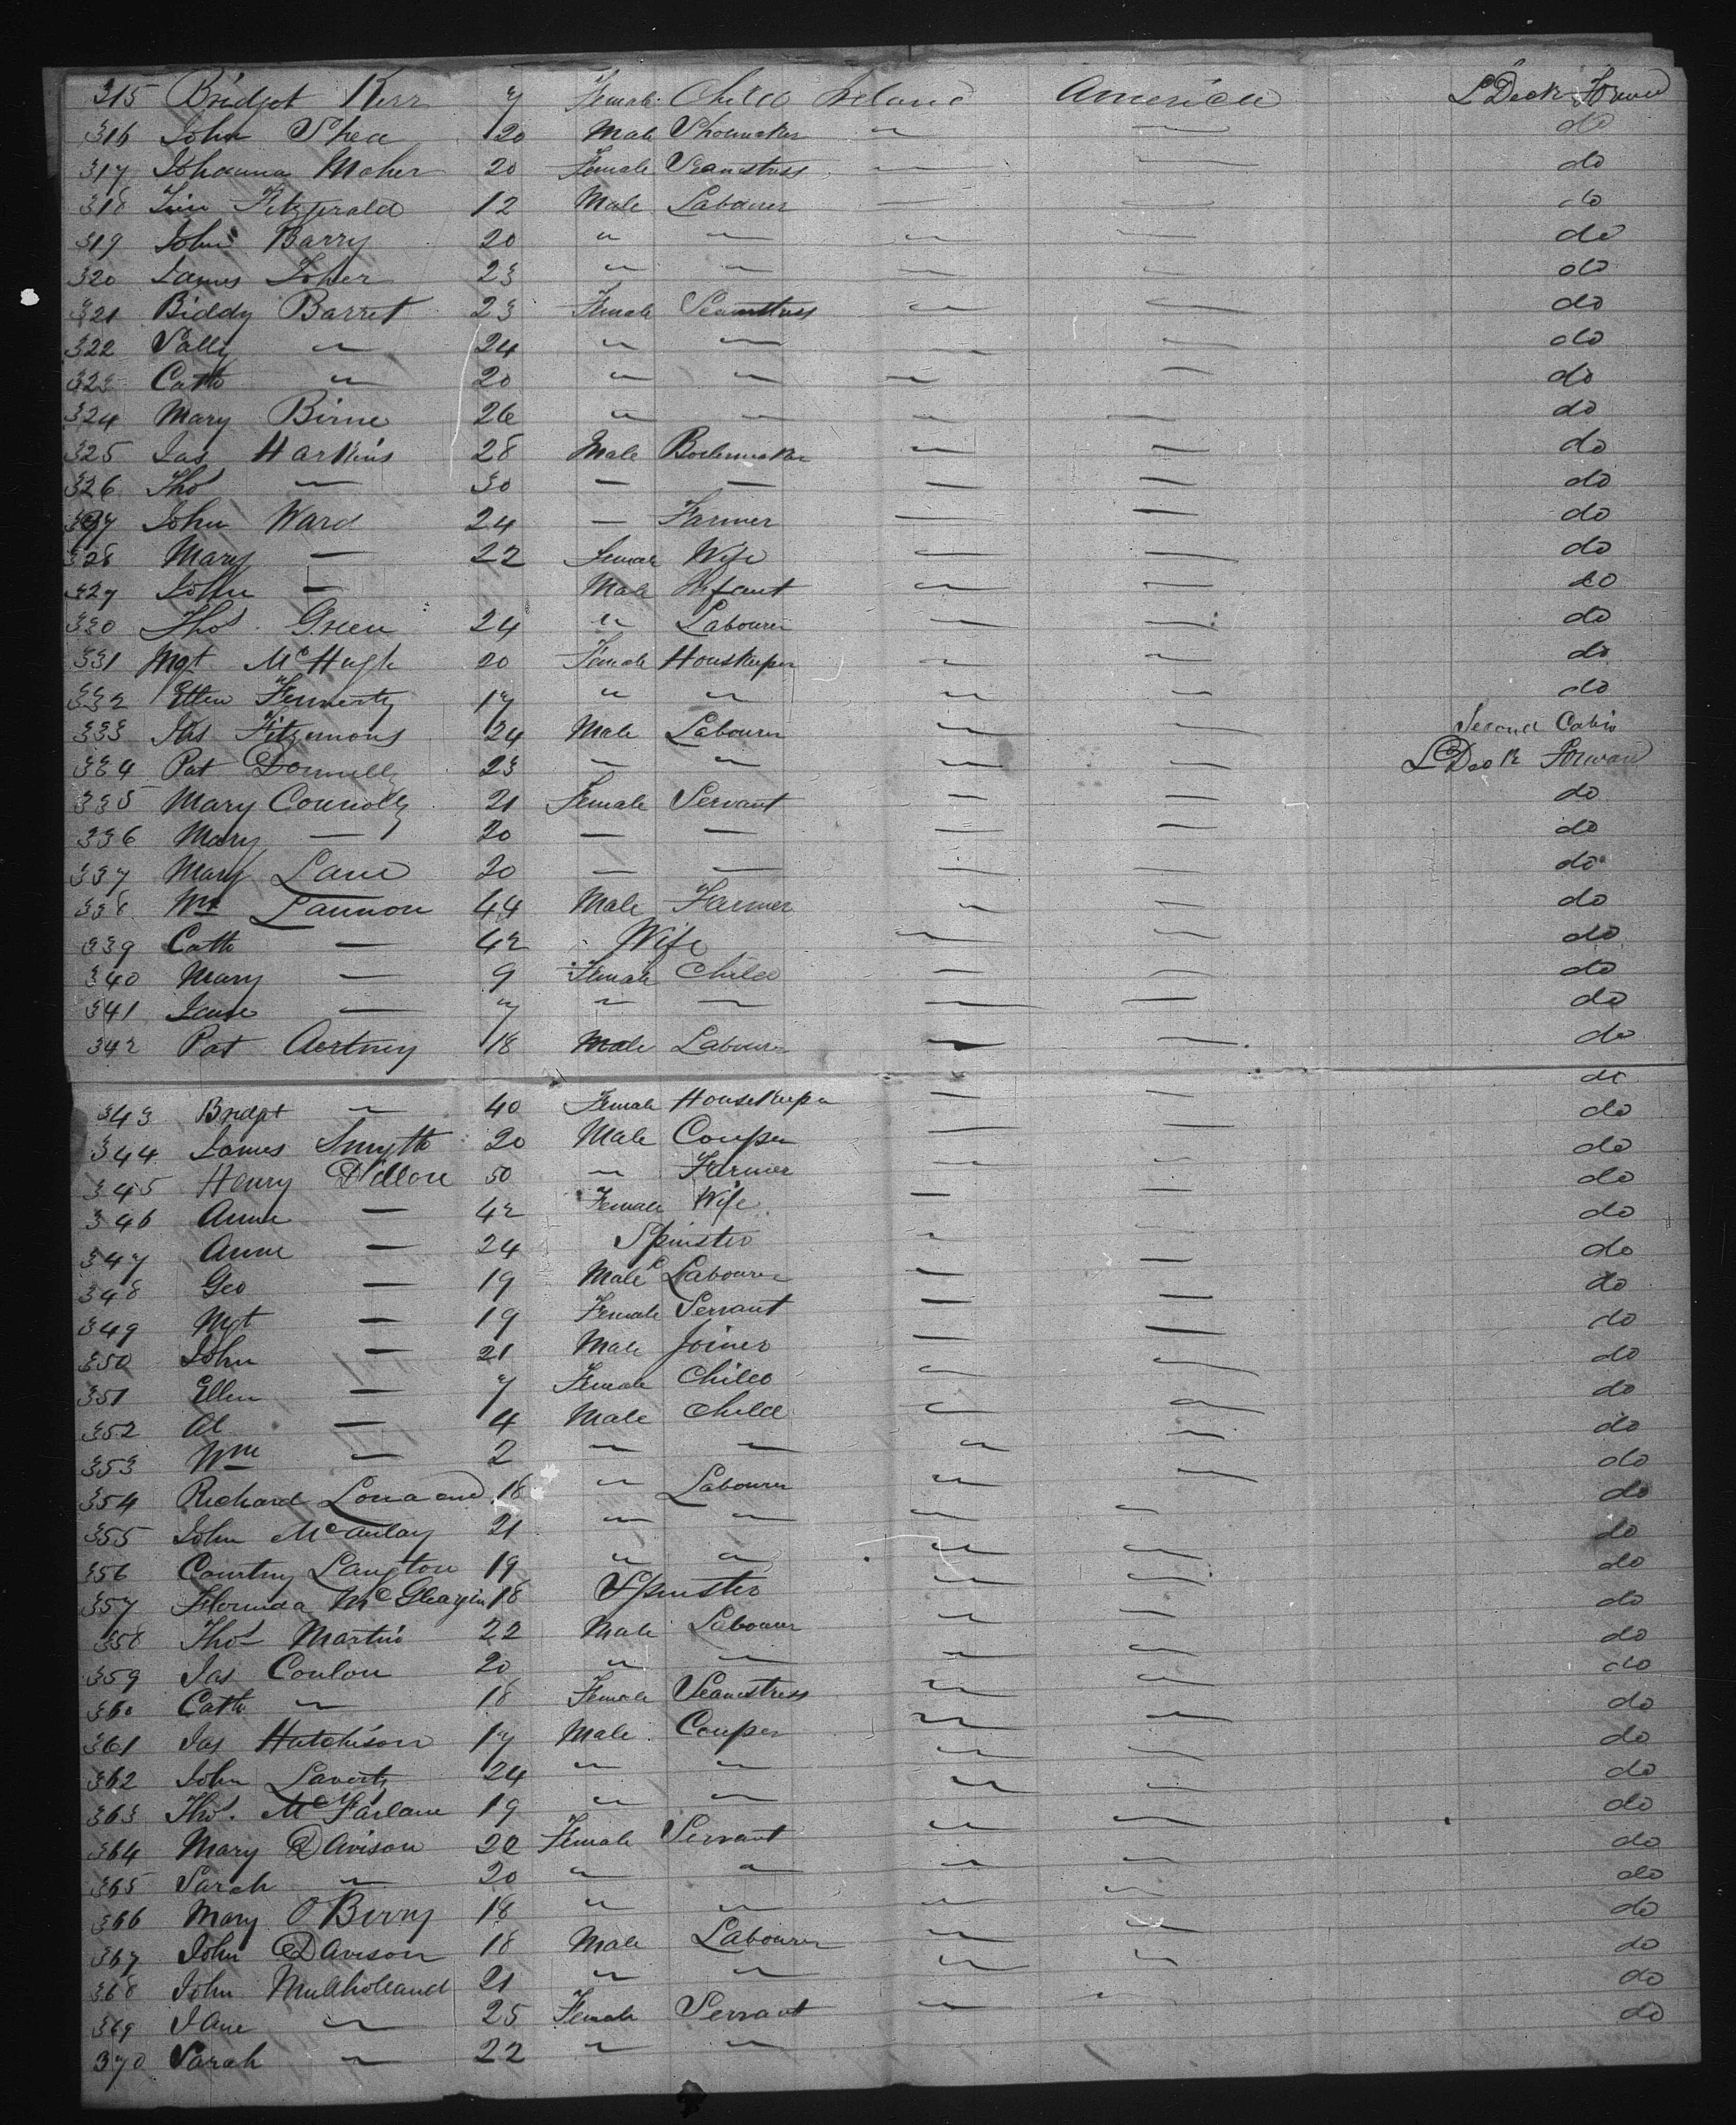 315 Bridget Kerr 7 Female Child Ireland America L Deck Forward
316 John Shea 20 Male Shoemaker " — do
317 Johanna Maher 20 Female Seamstress — — do
318 Fitzgerald 12 Male Labourer — — do
319 John Barry 20 " " " — do
320 James 23 " " — — do
321 Biddy Barret 23 Female Seamstress " — do
322 Sally " 24 " " — — do
323 Cath " 20 " " — — do
324 Mary Birne 26 " " — — do
325 Jas Harkins 28 Male Boilermaker — — do
326 Thos — 30 — — — — do
327 John Ward 24 — Farmer — — do
328 Mary — 22 Female Wife — — do
329 John — Male Infant — — do
330 Thos Green 24 " Labourer — — do
331 Mgt McHugh 20 Female Houskeeper — — do
332 Ellen Fennerty 17 " " — — do
333 Fitzimons 24 Male Labourer — — Second Cabin
334 Pat Donnelly 23 " " — — L Deck Forward
335 Mary Connolly 21 Female Servant — — do
336 Mary — 20 — — — — do
337 Mary Lane 20 — — — — do
338 Wm Lannon 44 Male Farmer — — do
339 Cath — 42 Wife — — do
340 Mary — 9 Female Child — — do
341 Jane — 7 " — — — do
342 Pat Aertney 18 Male Labourer — — do
343 Bridgt " 40 Female Housekeeper — — do
344 James Smyth 20 Male Couper — — do
345 Henry Dillon 50 " Farmer — — do
346 Anne — 42 Female Wife — — do
347 Anne — 24 Spinster — — do
348 Geo — 19 Male Labourer — — do
349 Mgt — 19 Female Servant — — do
350 John — 21 Male Joiner — — do
351 Ellen — 7 Female Child — — do
352 Al — 4 Male Child — — do
353 Wm — 2 " — — — do
354 Richard 18 " Labourer — — do
355 John McAulay 21 " " — — do
356 Courtny Langton 19 " " — — do
357 18 Spinster — — do
358 Thos Martin 22 Male Labourer — — do
359 Jas Conlon 20 " " — — do
360 Cath " 18 Female Seamstress — — do
361 Jas Hutchison 17 Male Couper — — do
362 John Laverty 24 " " — — do
363 Thos. McFarlane 19 " " — — do
364 Mary Davison 20 Female Servant — — do
365 Sarah " 20 " " — — do
366 Mary O'Berry 18 " " — — do
367 John Davison 18 Male Labourer — — do
368 John Mullholland 21 " " — — do
369 Jane " 25 Female Servant — — do
370 Sarah " 22 " "